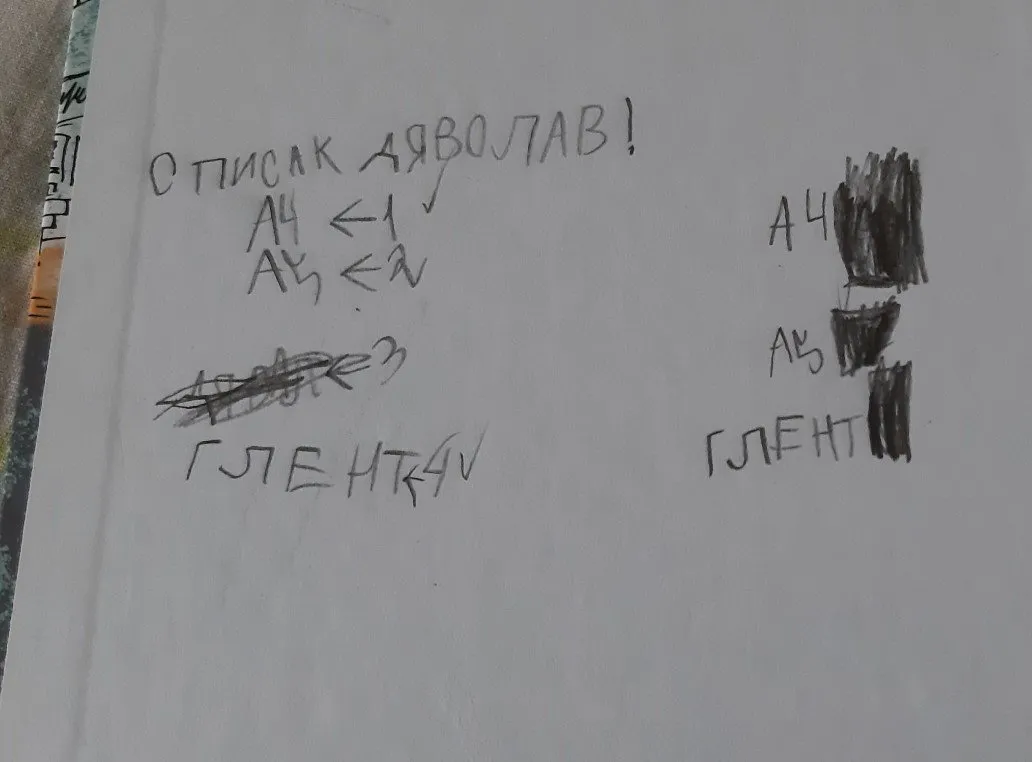 СПИСАК ДЯВОЛАВ!
АЧ ←1 ✓
АЦ ←2 ✓
←3
ГЛЕНТ ←4 ✓
АЧ
АЦ
ГЛЕНТ